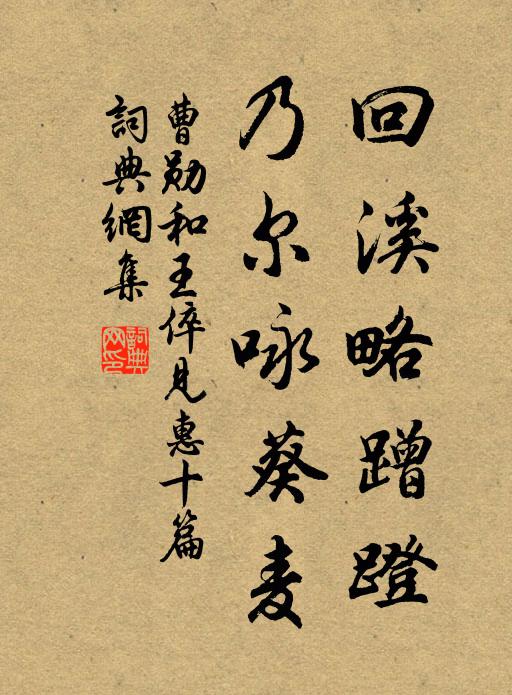 回溪略蹭蹬
乃尔咏葵麦
曹勋和王倅见惠十篇
詞典網集
詞典网印